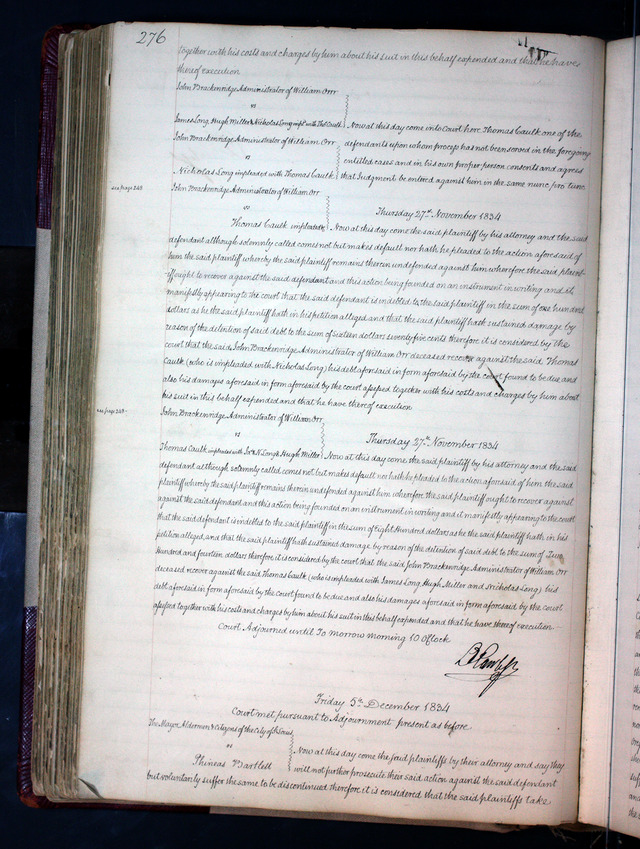 276
together with his costs and charges by him about his suit in this behalf expended and that he have
thereof execution
John Brackenridge Administrator of William Orr
vs
James Long, Hugh Miller & Nicholas Long impl. with Thos Caulk
Now at this day come into Court here Thomas Caulk one of the
John Brackenridge Administrator of William Orr
defendants upon whom process has not been served in the foregoing
vs
entitled cases and in his own proper person consents and agrees
Nicholas Long impleaded with Thomas Caulk
that Judgment be entered against him in the same nunc pro tunc
see page 249
John Brackenridge Administrator of William Orr
vs
Thursday 27th November 1834
Thomas Caulk impleaded
Now at this day come the said plaintiff by his attorney and the said
defendant although solemnly called comes not but makes default nor hath he pleaded to the action aforesaid of
him the said plaintiff whereby the said plaintiff remains therein undefended against him wherefore the said plaint-
iff ought to recover against the said defendant and this action being founded on an instrument in writing and it
manifestly appearing to the court that the said defendant is indebted to the said plaintiff in the sum of one hundred
dollars as he the said plaintiff hath in his petition alleged and that the said plaintiff hath sustained damage by
reason of the detention of said debt to the sum of sixteen dollars seventy five cents therefore it is considered by the
court that the said John Brackenridge Administrator of William Orr deceased recover against the said Thomas
Caulk (who is impleaded with Nicholas Long) his debt aforesaid in form aforesaid by the court found to be due and
also his damages aforesaid in form aforesaid by the court assessed together with his costs and charges by him about
his suit in this behalf expended and that he have thereof execution
see page 249
John Brackenridge Administrator of William Orr
vs
Thursday 27th November 1834
Thomas Caulk impleaded with Jas & N. Long & Hugh Miller
Now at this day come the said plaintiff by his attorney and the said
defendant although solemnly called comes not but makes default nor hath he pleaded to the action aforesaid of him the said
plaintiff whereby the said plaintiff remains therein undefended against him wherefore the said plaintiff ought to recover against
against the said defendant and this action being founded on an instrument in writing and it manifestly appearing to the court
that the said defendant is indebted to the said plaintiff in the sum of Eight Hundred dollars as he the said plaintiff hath in his
petition alleged, and that the said plaintiff hath sustained damage by reason of the detention of said debt to the sum of Two
Hundred and fourteen dollars therefore it is considered by the court that the said John Brackenridge Administrator of William Orr
deceased recover against the said Thomas Caulk (who is impleaded with James Long, Hugh Miller and Nicholas Long) his
debt aforesaid in form aforesaid by the court found to be due and also his damages aforesaid in form aforesaid by the court
assessed together with his costs and charges by him about his suit in this behalf expended and that he have thereof execution
Court Adjourned until To morrow morning 10 O'Clock
Friday 5th December 1834
Court met pursuant to Adjournment present as before
The Mayor Aldermen & Citizens of the City of St Louis
vs
Now at this day come the said plaintiffs by their attorney and say they
Phineas Bartlett
will not further prosecute their said action against the said defendant
but voluntarily suffer the same to be discontinued therefore it is considered that the said plaintiffs take